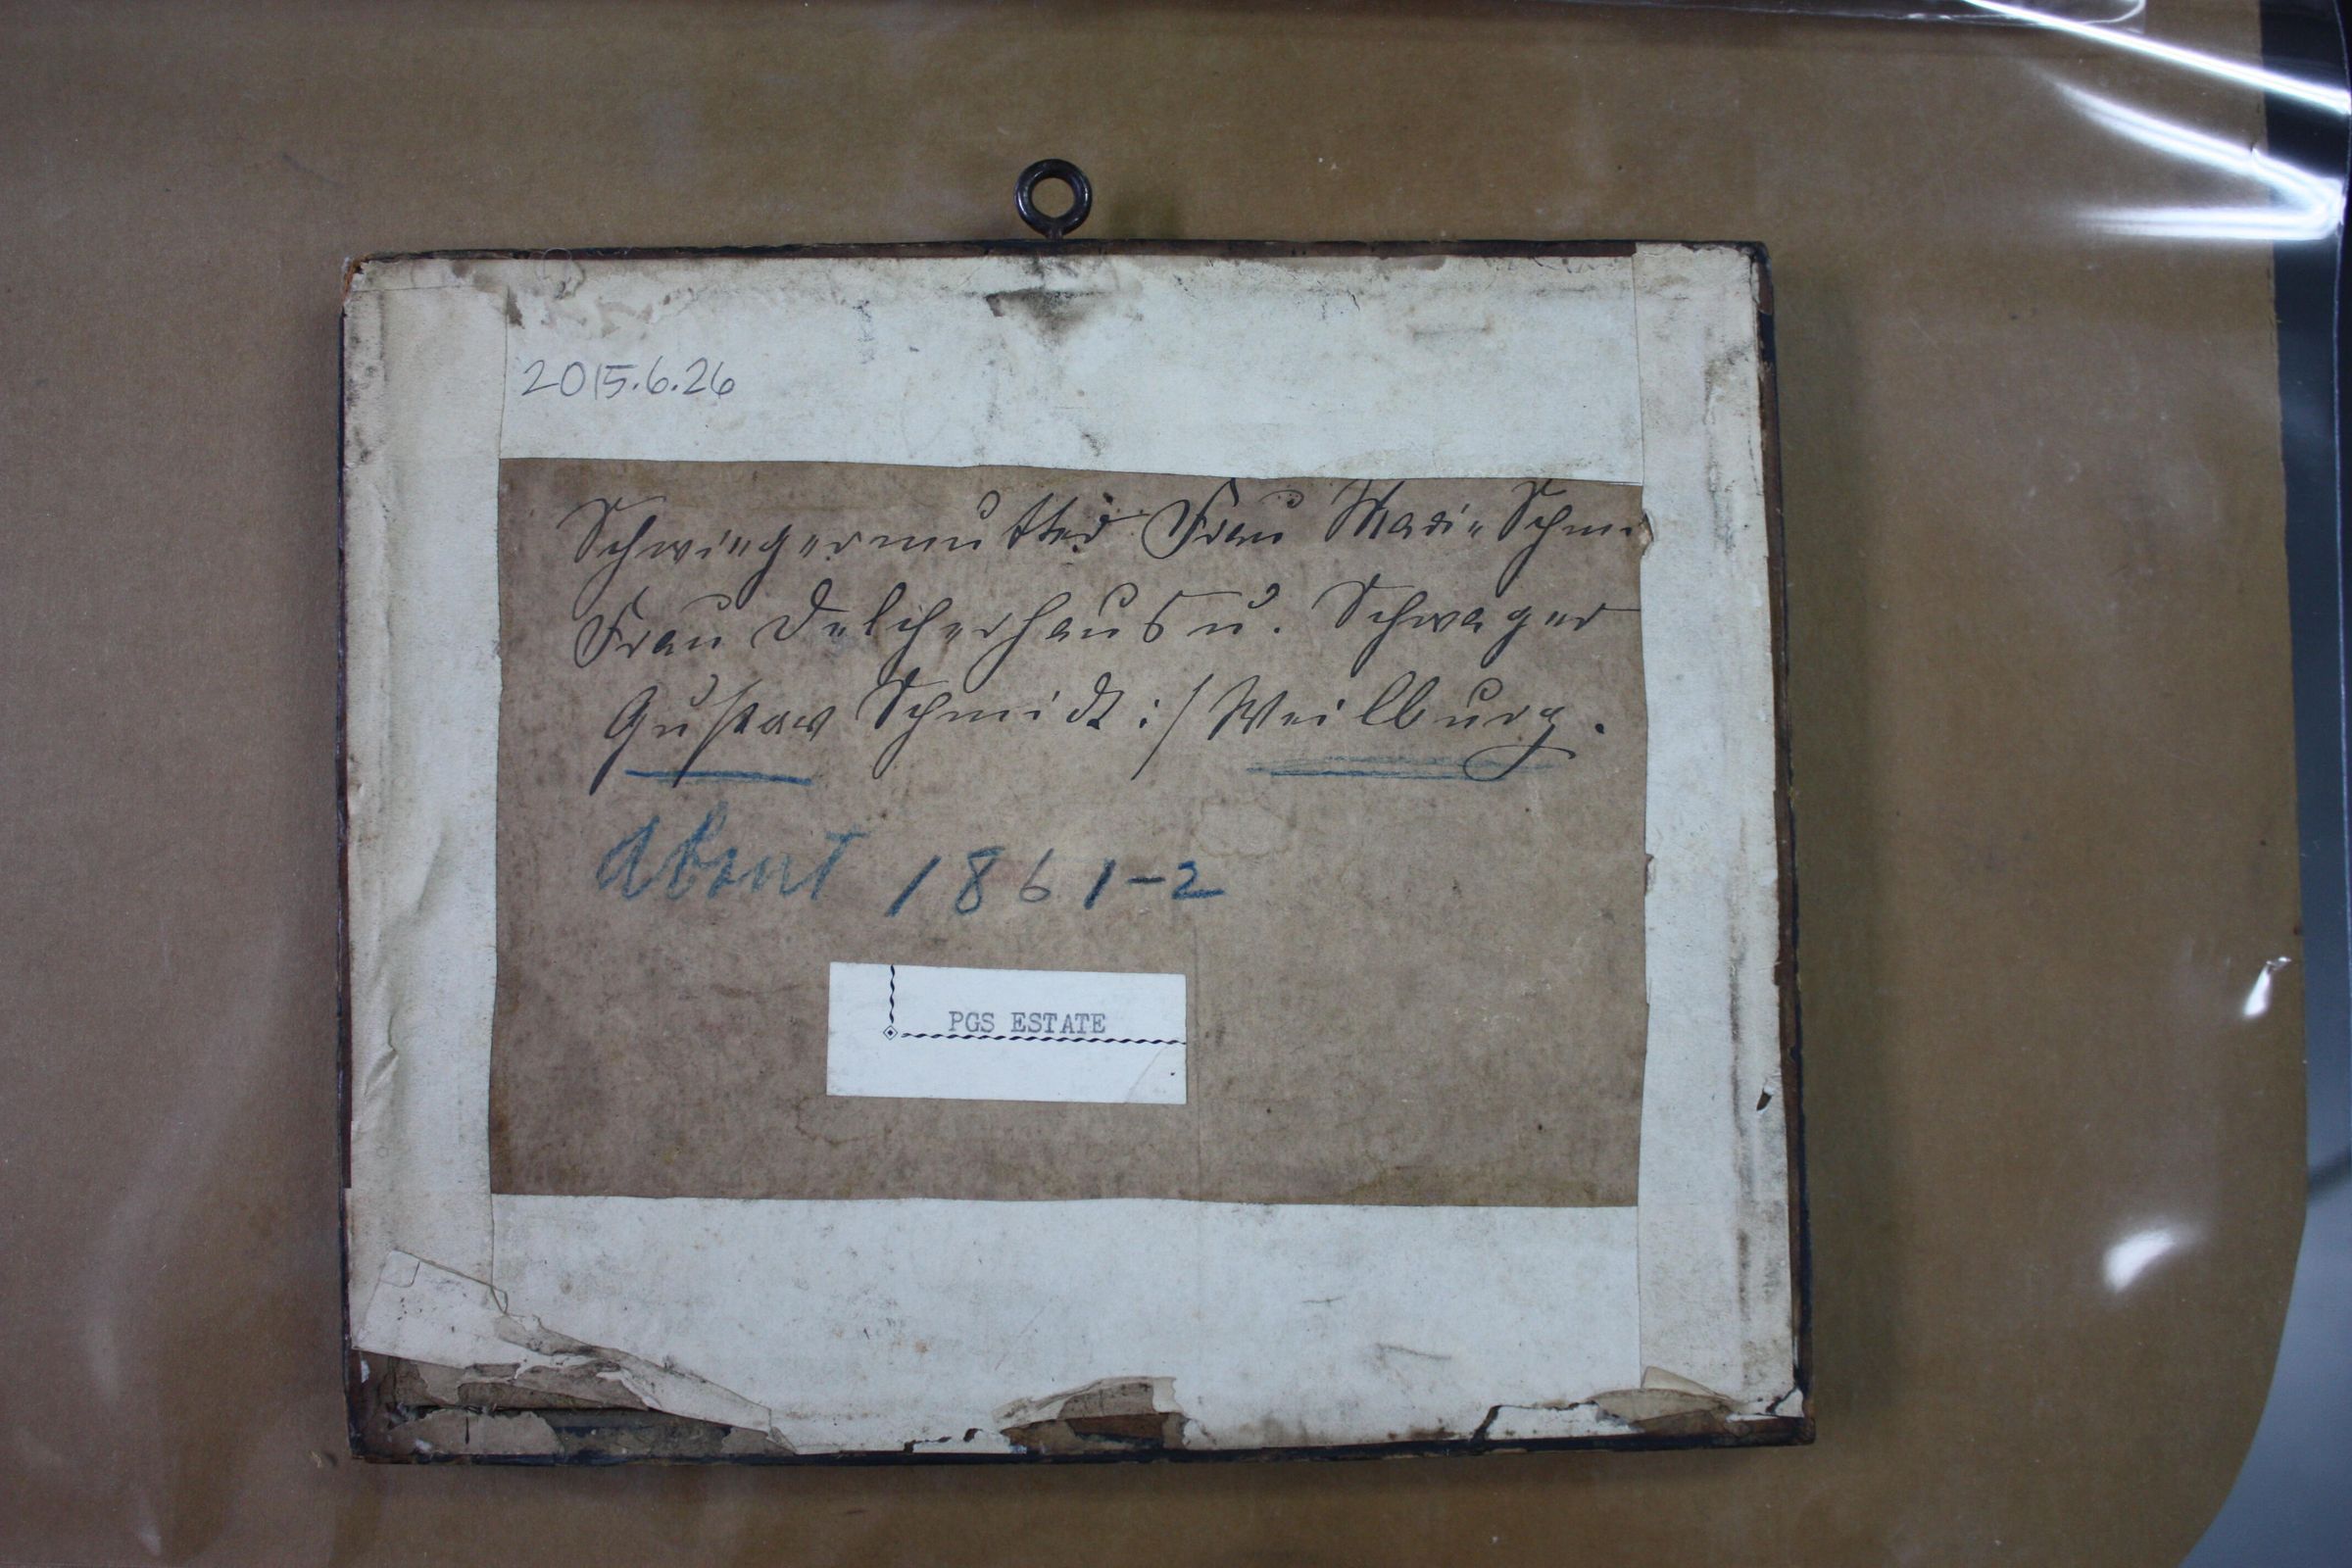 2015.6.26
Schwiegermutter Frau Marie Schmi
Frau Delcherhaus u. Schwager
Gustav Schmidt :/ Weilburg.
about 1861-2
PGS ESTATE